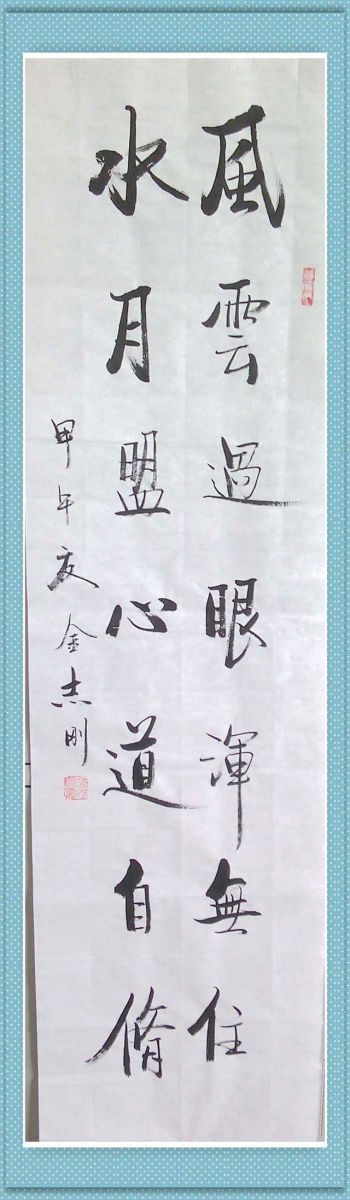 風雲過眼渾無住
水月盟心道自脩
甲午夏金志刚